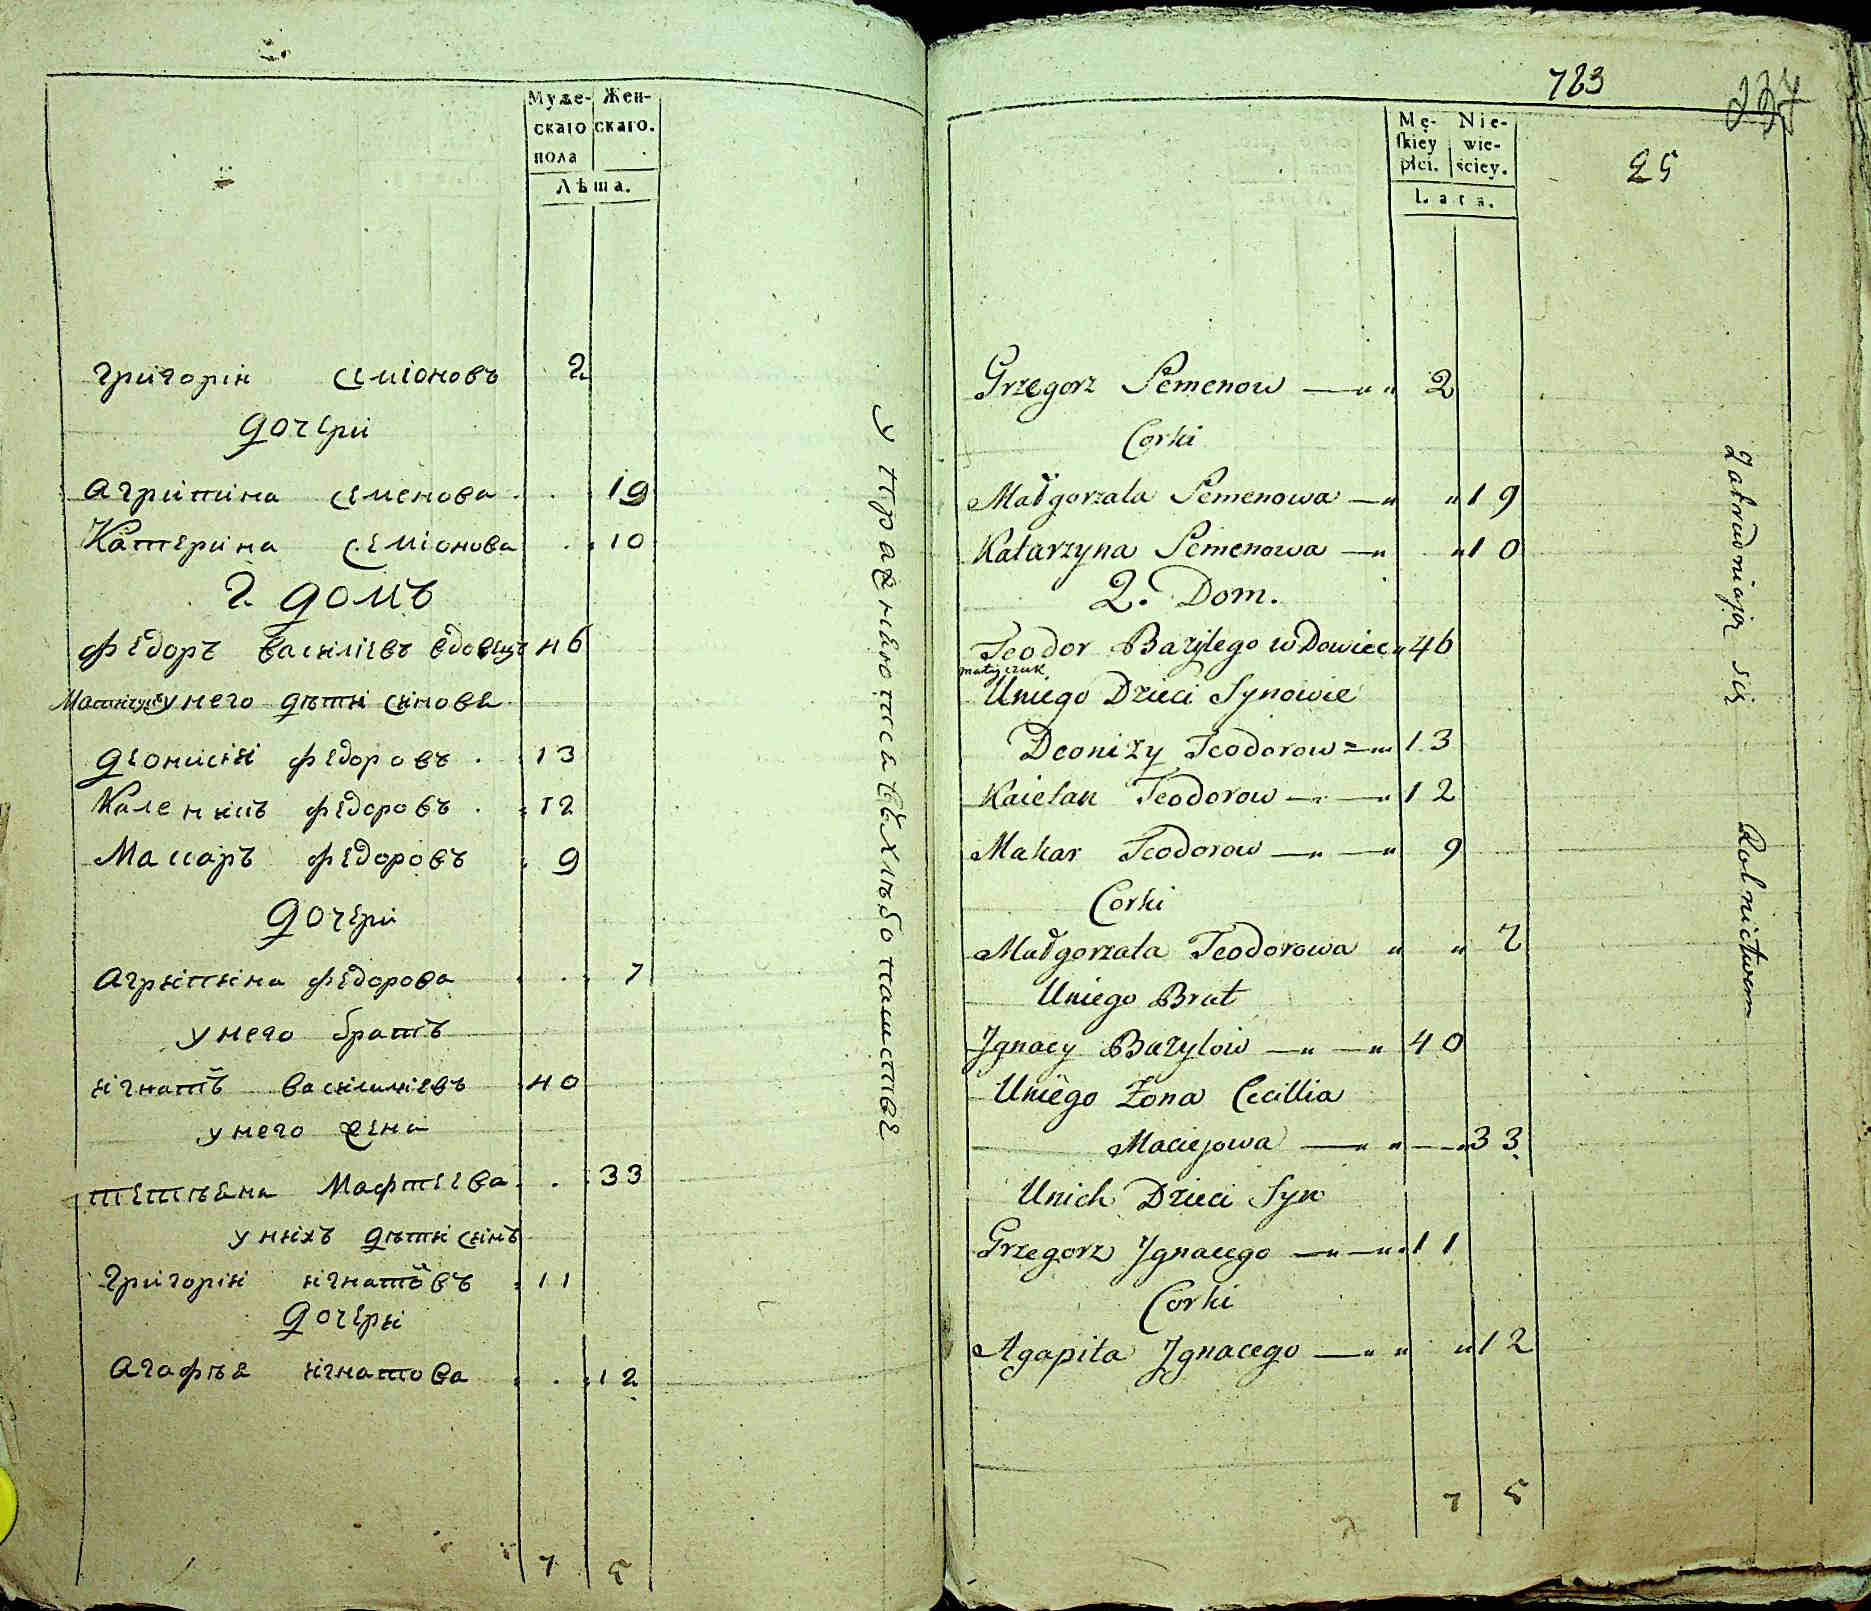 Муже- Жен-
скаго скаго.
пола
Лѣта.
Григории Семіоновъ 2
дочери
Агрипина Семенова 19
Катерина Семіонова 10
2. домъ
Федоръ Василіевъ вдовецъ 46
унего дѣти синове
Деонисий Федоровъ 13
Федоровъ 12
Макаръ Федоровъ 9
дочери
Агрипина Федорова 7
унего братъ
Игнатъ Василиевъ 40
унего жена
Мафтеева 33
унихъ дѣти синъ
Григорий Игнатовъ 11
дочери
Агафия Игнатова 12
7 5
783
237
25
Mę- Nie-
skiey wie-
płci. ściey.
Lata.
Grzegorz Semenow 2
Corki
Małgorzata Semenowa 19
Katarzyna Semenowa 10
2. Dom.
Teodor Bazylego wdowiec 46
matijczuk
Uniego Dzieci Synowie
Deonizy Teodorow 13
Kaietan Teodorow 12
Makar Teodorow 9
Corki
Małgorzata Teodorowa 7
Uniego Brat
Ignacy Bazylow 40
Uniego Żona Cecillia
Maciejowa 33
Unich Dzieci Syn
Grzegorz Ignacego 11
Corki
Agapita Ignacego 12
7 5
Zatrudniają się Rolnictwem